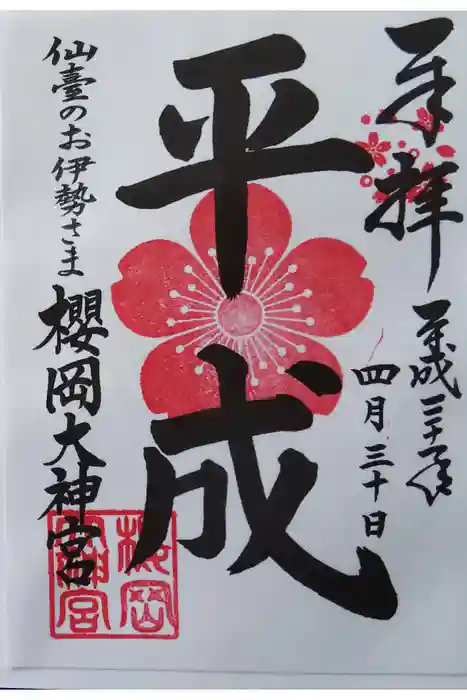 奉拝
平成三十一年
四月三十日
平成
仙臺のお伊勢さま
櫻岡大神宮
櫻岡
大神宮